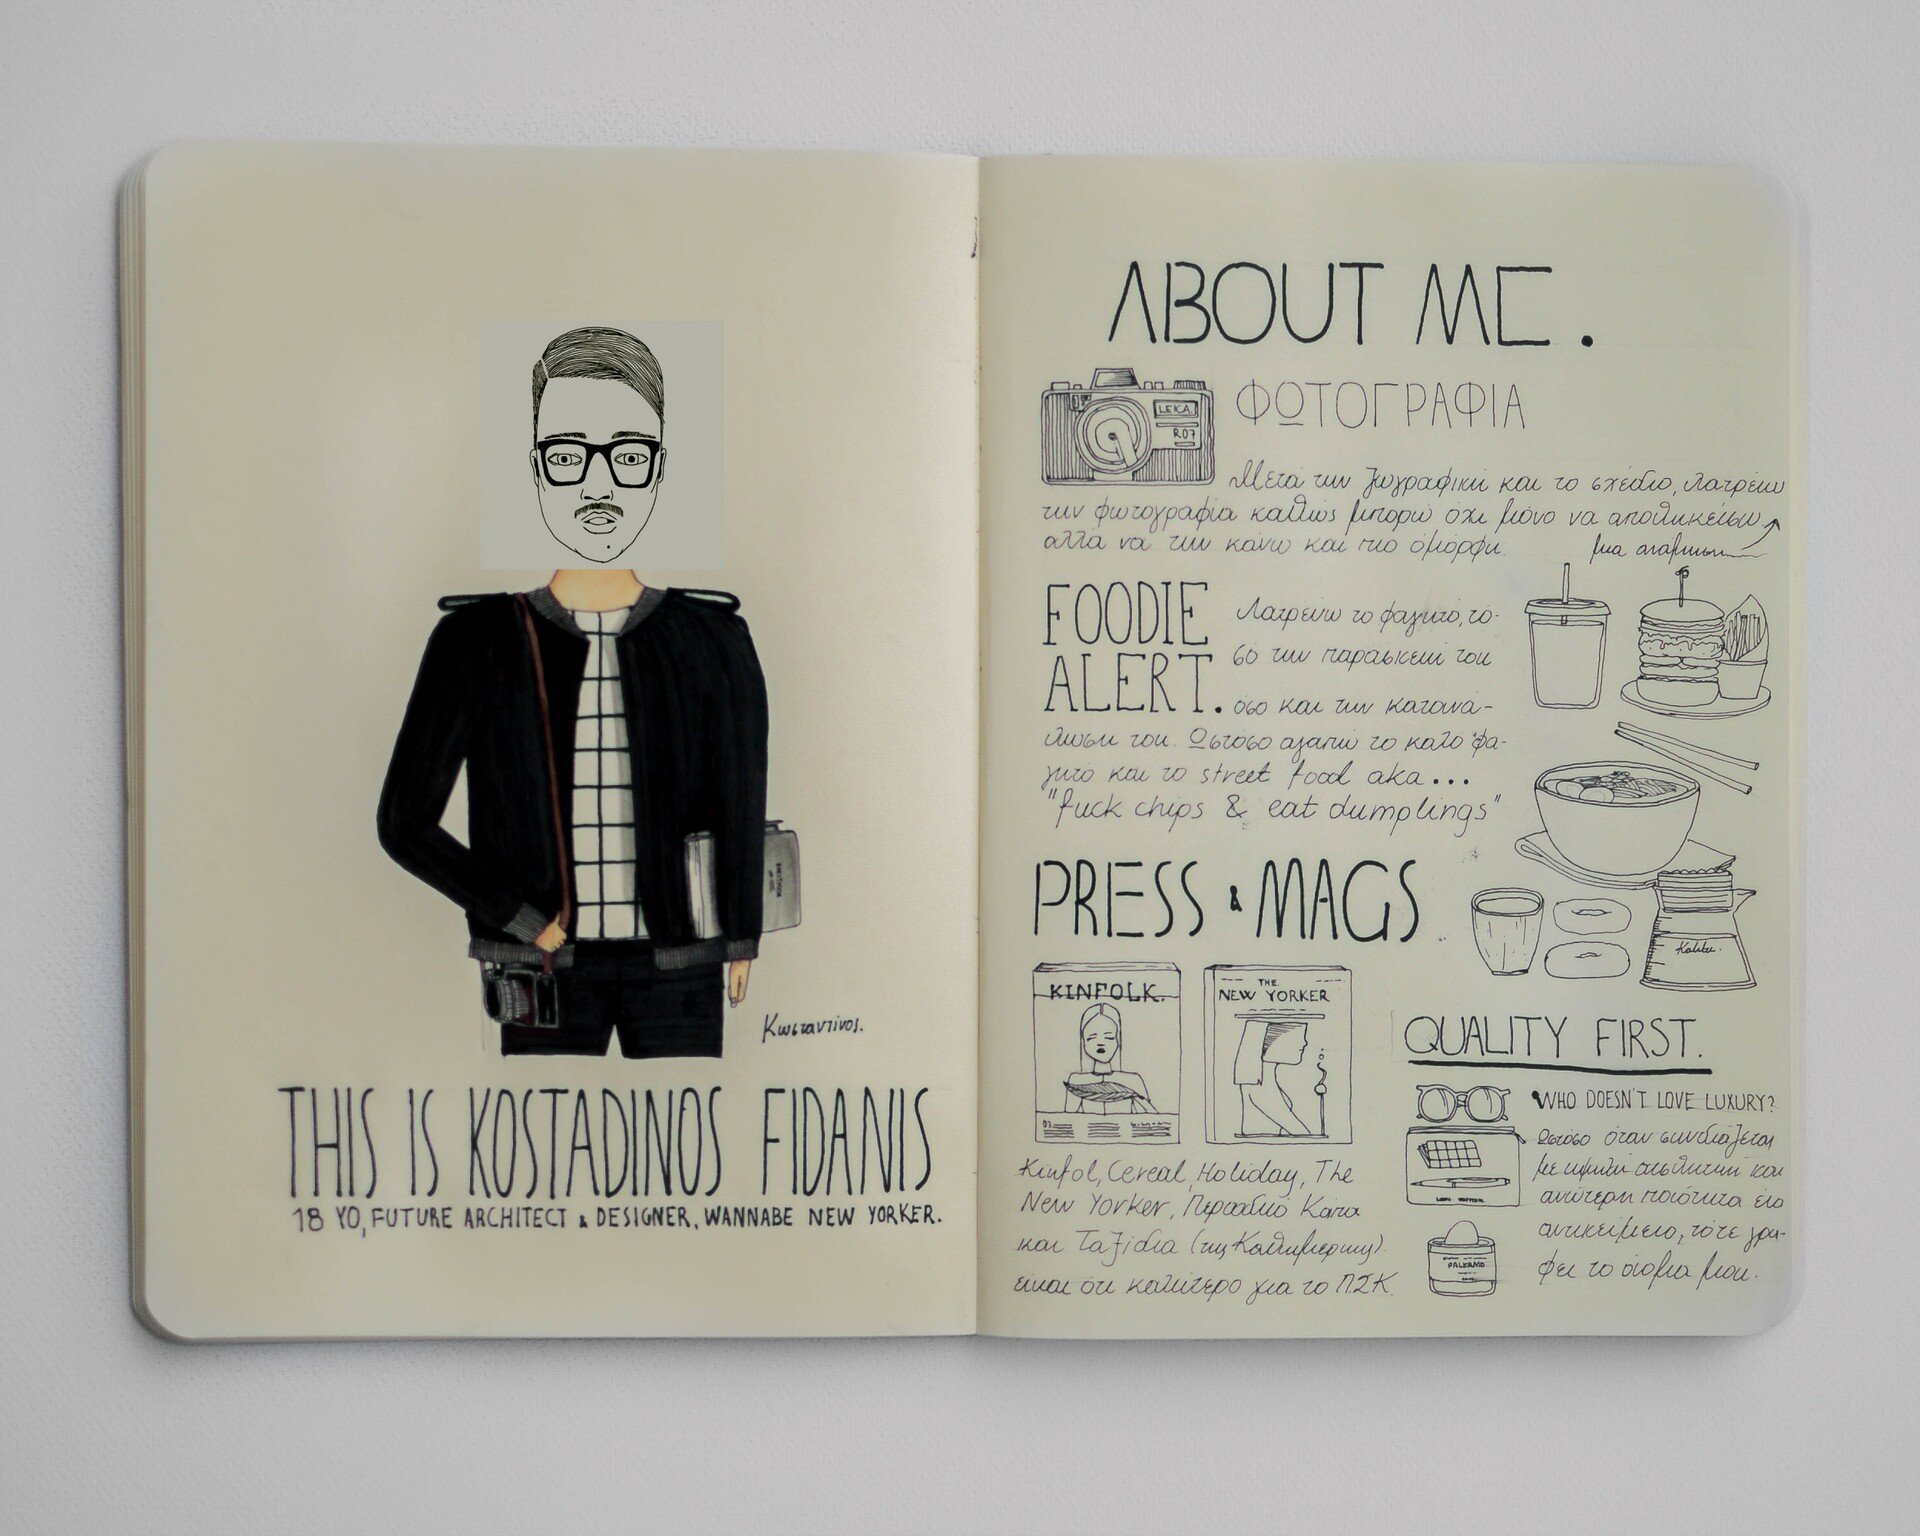 Κωσταντίνος.
THIS IS KOSTADINOS FIDANIS
18 YO, FUTURE ARCHITECT & DESIGNER, WANNABE NEW YORKER.
ABOUT ME.
LEICA
R07
ΦΩΤΟΓΡΑΦΙΑ
Μετά την ζωγραφική και το σχέδιο, λατρεύω
την φωτογραφία καθώς μπορώ όχι μόνο να αποθηκεύσω
αλλά να την κάνω και πιο όμορφη.
μια ανάμνηση
FOODIE
ALERT.
Λατρεύω το φαγητό, τό-
σο την παρασκευή του
όσο και την κατανά-
λωση του. Ωστόσο αγαπώ το καλό φα-
γητό και το street food aka...
"fuck chips & eat dumplings"
PRESS & MAGS
KINFOLK.
THE
NEW YORKER
Kinfol, Cereal, Holiday, The
New Yorker, Περιοδικό Κάπα
και Ταξίδια (της Καθημερινής)
είναι ότι καλύτερο για το ΠΣΚ.
Kalita.
QUALITY FIRST.
WHO DOESN'T LOVE LUXURY?
Ωστόσο όταν συνδιάζεται
με υψηλή αισθητική και
ανώτερη ποιότητα στο
αντικείμενο, τότε γρά-
φει το όνομα μου.
PALERMO